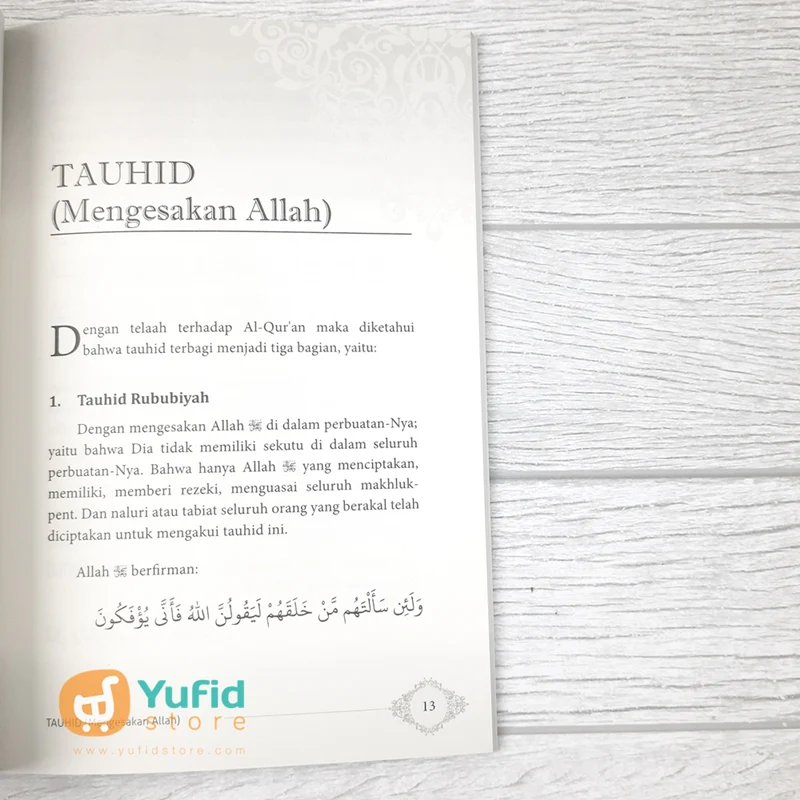 TAUHID
(Mengesakan Allah)
Dengan telaah terhadap Al-Qur'an maka diketahui
bahwa tauhid terbagi menjadi tiga bagian, yaitu:
1. Tauhid Rububiyah
Dengan mengesakan Allah ﷻ di dalam perbuatan-Nya;
yaitu bahwa Dia tidak memiliki sekutu di dalam seluruh
perbuatan-Nya. Bahwa hanya Allah ﷻ yang menciptakan,
memiliki, memberi rezeki, menguasai seluruh makhluk-
pent. Dan naluri atau tabiat seluruh orang yang berakal telah
diciptakan untuk mengakui tauhid ini.
Allah ﷻ berfirman:
وَلَئِن سَأَلْتَهُم مَّنْ خَلَقَهُمْ لَيَقُولُنَّ اللهُ فَأَنَّى يُؤْفَكُونَ
Yufid
store
TAUHID (Mengesakan Allah)
13
www.yufidstore.com